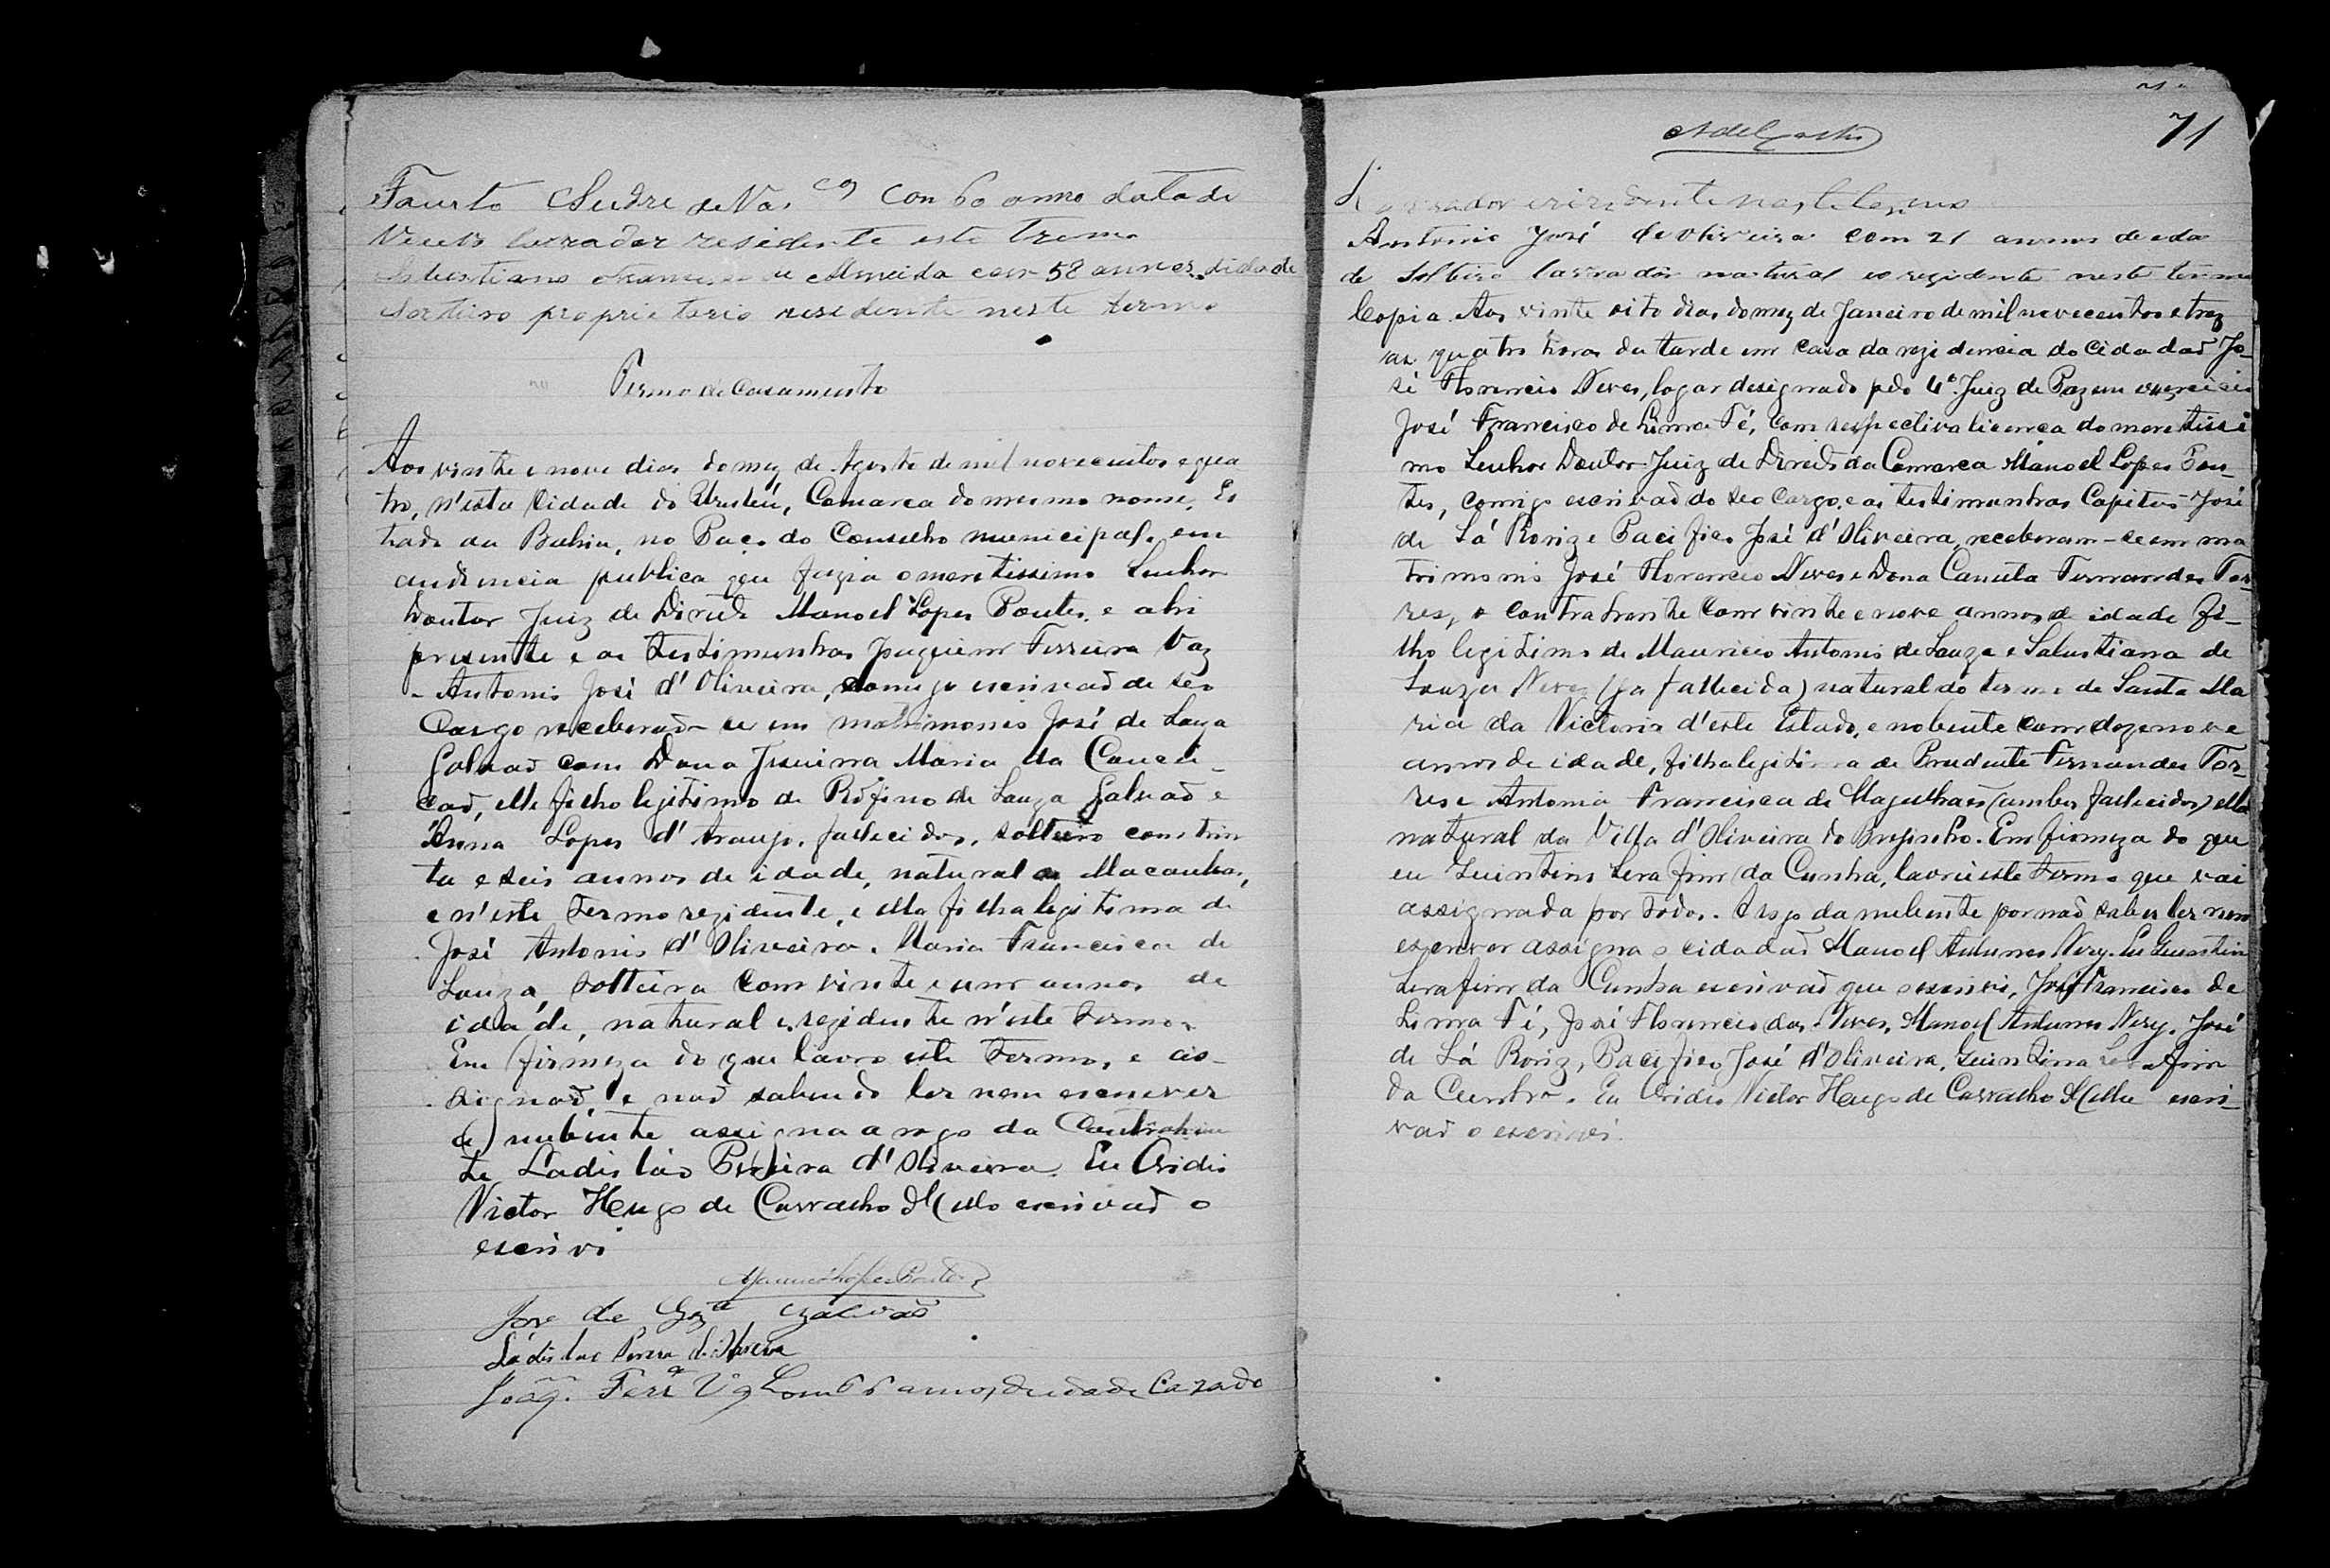 Fausto Sudre de Vas.cos Con 60 anno data de
Veuvo lavrador residente este tremo
Almeida com 58 annos didade
Sorteiro proprietario residente neste termo
Termo de Casamento
Aos vinte e nove dias do mez de Agosto de mil novecentos e qua
tro, n'esta Cidade do Urubú, Comarca do mesmo nome, Es
tado da Bahia, no Paço do Conselho municipal, em
audiencia publica que fazia o meretissimo Senhor
Doutor Juiz de Direito Manoel Lopes Pontes, e ahi
presente e as testimunhas Joaquim Ferreira Vaz
Antonio José d'Oliveira, comigo escrivaõ de seo
Cargo receberaõ-se em matrimonio José de Souza
Galvaõ com Dona Maria da Concei-
çaõ, elle filho legitimo de Rofino de Souza Galvaõ e
Anna Lopes d'Araujo, fallecidos, solteiro com trin
ta e seis annos de idade, natural de Macaubas,
e n'este Termo rezidente, e ella filha legitima de
José Antonio d'Oliveira e Maria Francisca de
Souza, solteira com vinte e um annos de
idade, natural e rezidente n'este termo.
Em firmeza do que lavro este termo, e as-
signaõ e naõ sabendo ler nem escrever
a nubente assigna a rogo da Contrahen
te Ladisláo Pereira d'Oliveira. Eu Oridio
Victor Hugo de Carvalho Mello escrivaõ o
escrivi
Manoel Lopes Pontes
Jose de Sza Galvão
Ladislao Perera de Oliveira
Joaq. Ferra Vaz Com 66 annos de idade Cazado
71
Lavrador e rezidente neste termo
Antonio José de Oliveira com 21 annos de eda
de Solteiro lavrador natural e rezidente neste termo
Copia. Aos vinte oito dias do mez de Janeiro de mil novecentos e trez
as quatro horas da tarde em casa da rezidencia do Cidadaõ Jo-
sé Florencio Neves, logar designado pelo 4º Juiz de Paz em exercicio
José Francisco de Lima Fé, com respectiva licença do meretissi
mo Senhor Doutor Juiz de Direito da Comarca Manoel Lopes Pon-
tes, comigo escrivaõ do seo Cargo, e as testimunhas Capitaõ José
de Sá Roriz e Pacifico José d'Oliveira, receberam-se em ma
trimonio José Florencio Neves e Dona Canuta Fernandes Tor-
res, o contrahente com vinte e nove annos de idade fi-
lho legitimo de Mauricio Antonio de Souza e Salustiana de
Souza Neves (ja fallecida) natural do termo de Santa Ma
ria da Victoria d'este Estado, e nobente com dezenove
annos de idade, filha legitima de Prudente Fernandes Tor-
res e Antonia Francisca de Magalhaes (ambos fallecidos) ella
natural da Villa d'Oliveira do Brejinho. Em firmeza do que
eu Quintino Serafim da Cunha, lavrei este termo que vai
assignada por todos. A rogo da nubente por naõ saber ler nem
escrever assigna o cidadaõ Manoel Antunes Nery. Eu Quintino
Serafim da Cunha escrivaõ que o escrivi, José Francisco de
Lima Fé, José Florencio das Neves, Manoel Antunes Nery, José
de Sá Roriz, Pacifico José d'Oliveira, Quintino Serafim
da Cunha. Eu Oridio Victor Hugo de Carvalho Mello escri-
vaõ o escrivi.